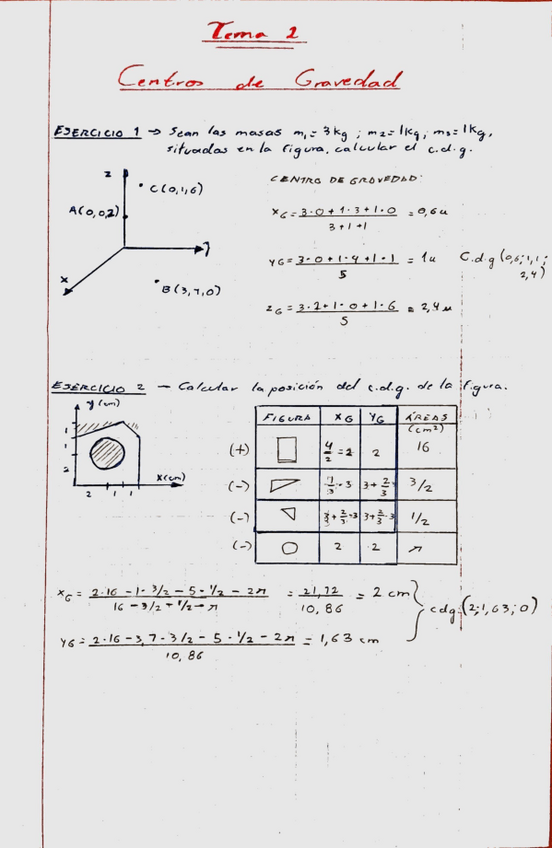 Tema 2
Centros de Gravedad
EJERCICIO 1 → Sean las masas m₁= 3 kg ; m₂= 1 kg, m₃= 1 kg,
situadas en la figura, calcular el c.d.g.
z
C(0,1,6)
A(0,0,2)
x
B(3,4,0)
CENTRO DE GRAVEDAD:
x_G = (3·0+1·3+1·0)/(3+1+1) = 0,6 u
y_G = (3·0+1·4+1·1)/5 = 1u
C.d.g (0,6; 1,1;
2,4)
z_G = (3·2+1·0+1·6)/5 = 2,4 u
EJERCICIO 2 — Calcular la posición del c.d.g. de la figura.
y (cm)
1
1
2
x(cm)
2 1 1
FIGURA X_G Y_G ÁREAS (cm²)
(+) 4/2 = 2 2 16
(-) 3+2/3 3/2
(-) 3+2/3 3+2/3 1/2
(-) 2 2 π
x_G = (2·16 - 1·3/2 - 5·1/2 - 2π)/(16 - 3/2 + 1/2 - π) = 21,72/10,86 = 2 cm
cdg (2; 1,63; 0)
y_G = (2·16 - 3,7·3/2 - 5·1/2 - 2π)/10,86 = 1,63 cm